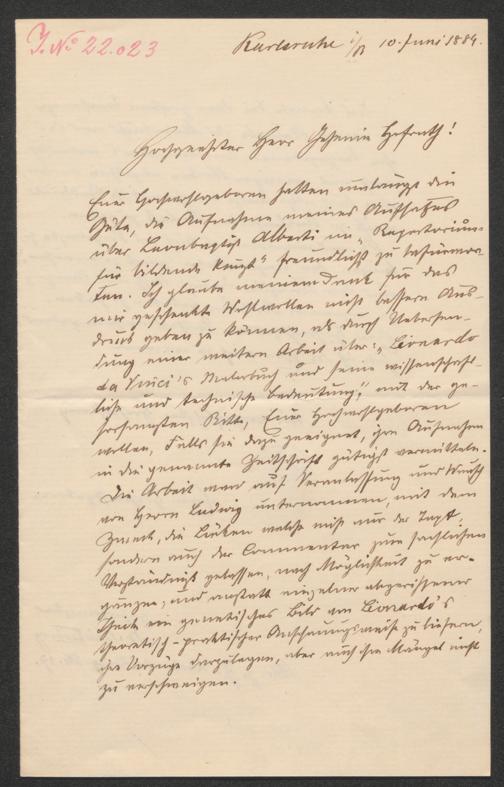 J. No 22.023
Karlsruhe i/B 10. Juni 1884.
Hochgeehrter Herr Geheimer Hofrath!
Euer Hochwohlgeboren hatten unlängst die
Güte, die Aufnahme meines Aufsatzes
über Leonbattista Alberti im „Repertorium
für bildende Kunst" freundlichst zu befürwor-
ten. Ich glaube meinem Dank für das
mir geschenkte Wohlwollen nicht bessern Aus-
druck geben zu können, als durch Uebersen-
dung einer weitern Arbeit über: „Lionardo
da Vinci's Malerbuch und seine wissenschaft-
liche und technische Bedeutung", mit der ge-
horsamsten Bitte, Euer Hochwohlgeboren
wollen, falls sie dazu geeignet, ihre Aufnahme
in die genannte Zeitschrift gütigst vermitteln.
Die Arbeit ward auf Veranlassung und Wunsch
von Herrn Ludwig unternommen, mit dem
Zweck, die Lücken welche nicht nur der Text,
sondern auch der Commentar zum sachlichen
Verständniß gelassen, nach Möglichkeit zu er-
gänzen; und anstatt einzelner abgerissener
Theile ein genetisches Bild von Lionardo's
theoretisch-praktischer Anschauungsweise zu liefern,
ihre Vorzüge darzulegen, aber auch ihre Mängel nicht
zu verschweigen.